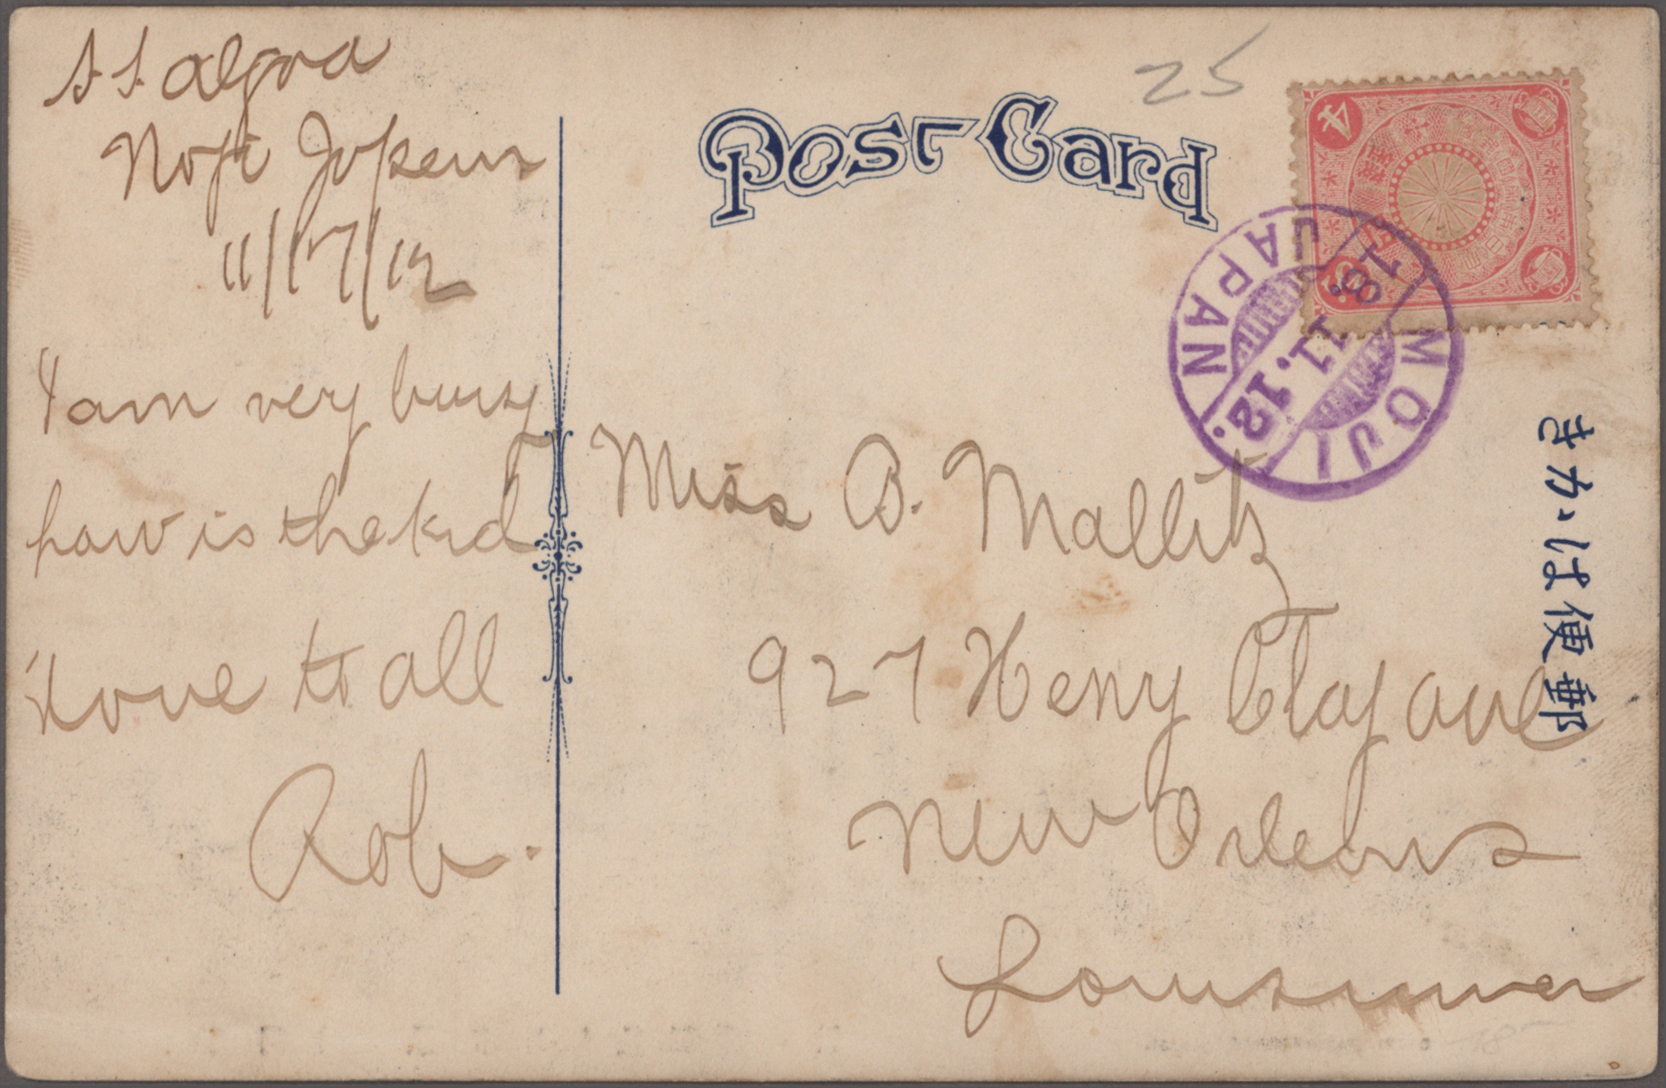 S.S. Algoa
Moji Japan
11/17/12
I am very busy
how is the kid
Love to all
Rob.
25
Post Card
4
MOJI
18.11.12.
JAPAN
きかは便郵
Miss B. Mallitz
927 Heny Clay ave
New Orleans
Louisiana